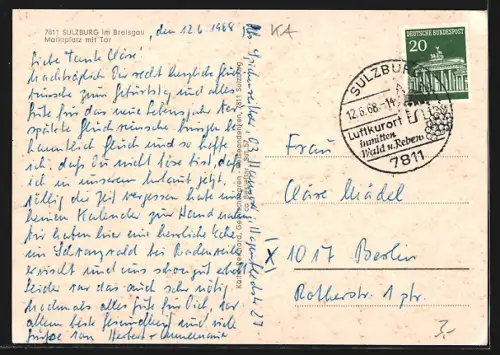 7811 SULZBURG im Breisgau
Marktplatz mit Tor
, den 12.6.1968
KA
Liebe Tante Kläre!
Nachträglich Dir recht herzliche Glück
wünsche zum Geburtstag und alles
Gute für das neue Lebensjahr. Ver
spätete Glückwünsche bringen be
kanntlich Glück und so hoffe
ich, daß Du nicht böse bist, daß
ich in unserem Urlaub jetzt
völlig die Zeit vergessen habe und
keinen Kalender zur Hand hatte.
Wir haben hier eine herrliche Ecke
im Schwarzwald bei Badenweiler
erwischt und uns schon gut erholt
leider war das auch sehr nötig
Nochmals alles Gute für Dich, vor
allem beste Gesundheit und viele
Grüße von Herbert + Annemarie
7811 Sulzburg
DEUTSCHE BUNDESPOST
20
SULZBURG
12.6.68.-14
Luftkurort
inmitten
Wald u. Reben
7811
Frau
Kläre Mädel
1017 Berlin
Rotherstr. 1 ptr.
3,-